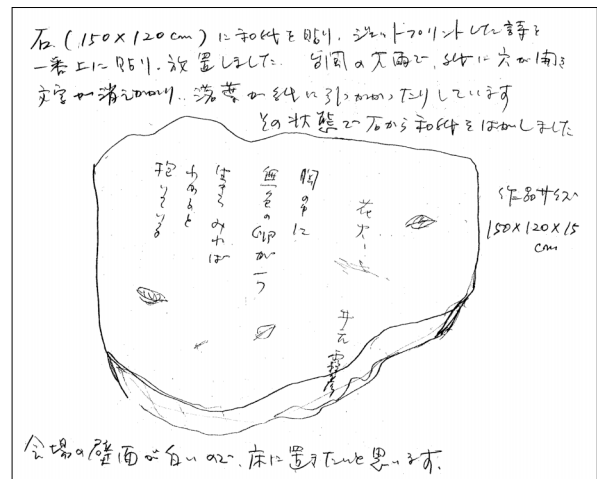 石(150×120cm)に和紙を貼り、ジェットプリントした詩を
一番上に貼り、放置しました。 的大雨で、紙に穴が開き
文字が消えかかり、落葉が紙に引っかかったりしています
その状態で石から和紙をはがしました
作品サイズ
150×120×15
cm
花火
胸の中に
無色の卵が一つ
生きてみれば
抱いている
会場の壁面が白いので、床に置きたいと思います。